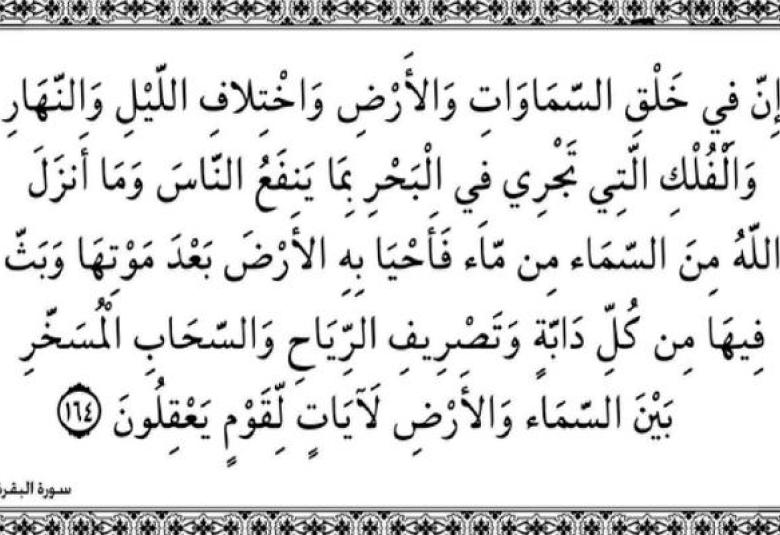 إِنّ فِي خَلْقِ السّمَاوَاتِ وَالأَرْضِ وَاخْتِلافِ اللّيْلِ وَالنّهَارِ
وَالْفُلْكِ الّتِي تَجْرِي فِي الْبَحْرِ بِمَا يَنفَعُ النّاسَ وَمَا أنزَلَ
اللّهُ مِنَ السّمَاء مِن مّاء فَأَحْيَا بِهِ الأرْضَ بَعْدَ مَوْتِهَا وَبَثّ
فِيهَا مِن كُلّ دَابّةٍ وَتَصْرِيفِ الرّيَاحِ وَالسّحَابِ الْمُسَخّرِ
بَيْنَ السّمَاء وَالأَرْضِ لَآيَاتٍ لّقَوْمٍ يَعْقِلُونَ ١٦٤
سورة البقرة